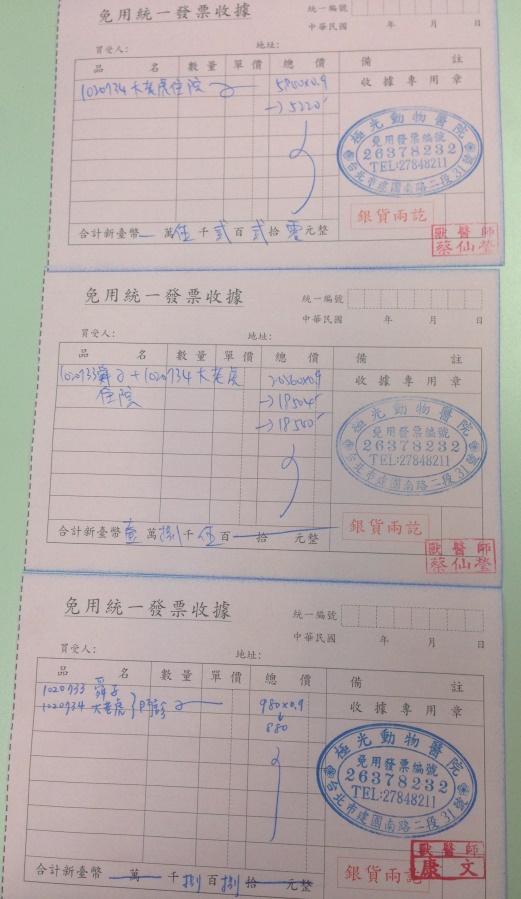 免用統一發票收據
統一編號
中華民國 年 月 日
買受人: 地址:
品 名 數量 單價 總價 備 註
1020734 大老虎住院 5800x0.9 收據專用章
→5220
極光動物醫院
免用發票編號
26378232
TEL:27848211
台北市建國南路二段31號
銀貨兩訖
獸醫師
蔡仙瑩
合計新臺幣 萬伍千貳百貳拾零元整
免用統一發票收據
統一編號
中華民國 年 月 日
買受人: 地址:
品 名 數量 單價 總價 備 註
1020733舜子+1020734大老虎 20560x0.9 收據專用章
住院 →18504
→18500
極光動物醫院
免用發票編號
26378232
TEL:27848211
台北市建國南路二段31號
銀貨兩訖
獸醫師
蔡仙瑩
合計新臺幣壹萬捌千伍百 拾 元整
免用統一發票收據
統一編號
中華民國 年 月 日
買受人: 地址:
品 名 數量 單價 總價 備 註
1020733 舜子 980x0.9 收據專用章
1020734 大老虎 門診 880
極光動物醫院
免用發票編號
26378232
TEL:27848211
台北市建國南路二段31號
銀貨兩訖
獸醫師
康文
合計新臺幣 萬 千捌百捌拾 元整